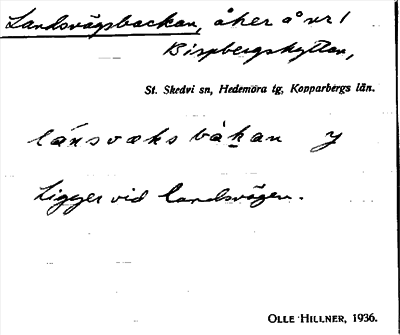 Landsvägsbackan, åker å nr 1
Bispbergshyttan,
St. Skedvi sn, Hedemora tg, Kopparbergs län.
lánsvæks bàkan y
Ligger vid landsvägen.
OLLE HILLNER, 1936.